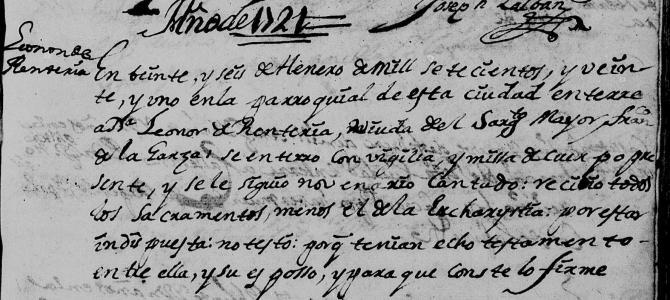 Joseph Galban
Año de 1721
Leonor de
Renteria
En veinte, y seis de Henero de mill setecientos, y vein
te, y uno en la parroquial de esta ciudad enterre
a Da Leonor de Renteria, viuda del Sargto Mayor Fran
de la Garza: se enterro con vigilia, y missa de cuerpo pre
sente, y se le siguio novenario cantado: recibio todos
los sacramentos, menos el de la Eucharystia: por estar
indispuesta: no testo: porq tenian echo testamento
entre ella, y su esposso, y para que conste lo firme